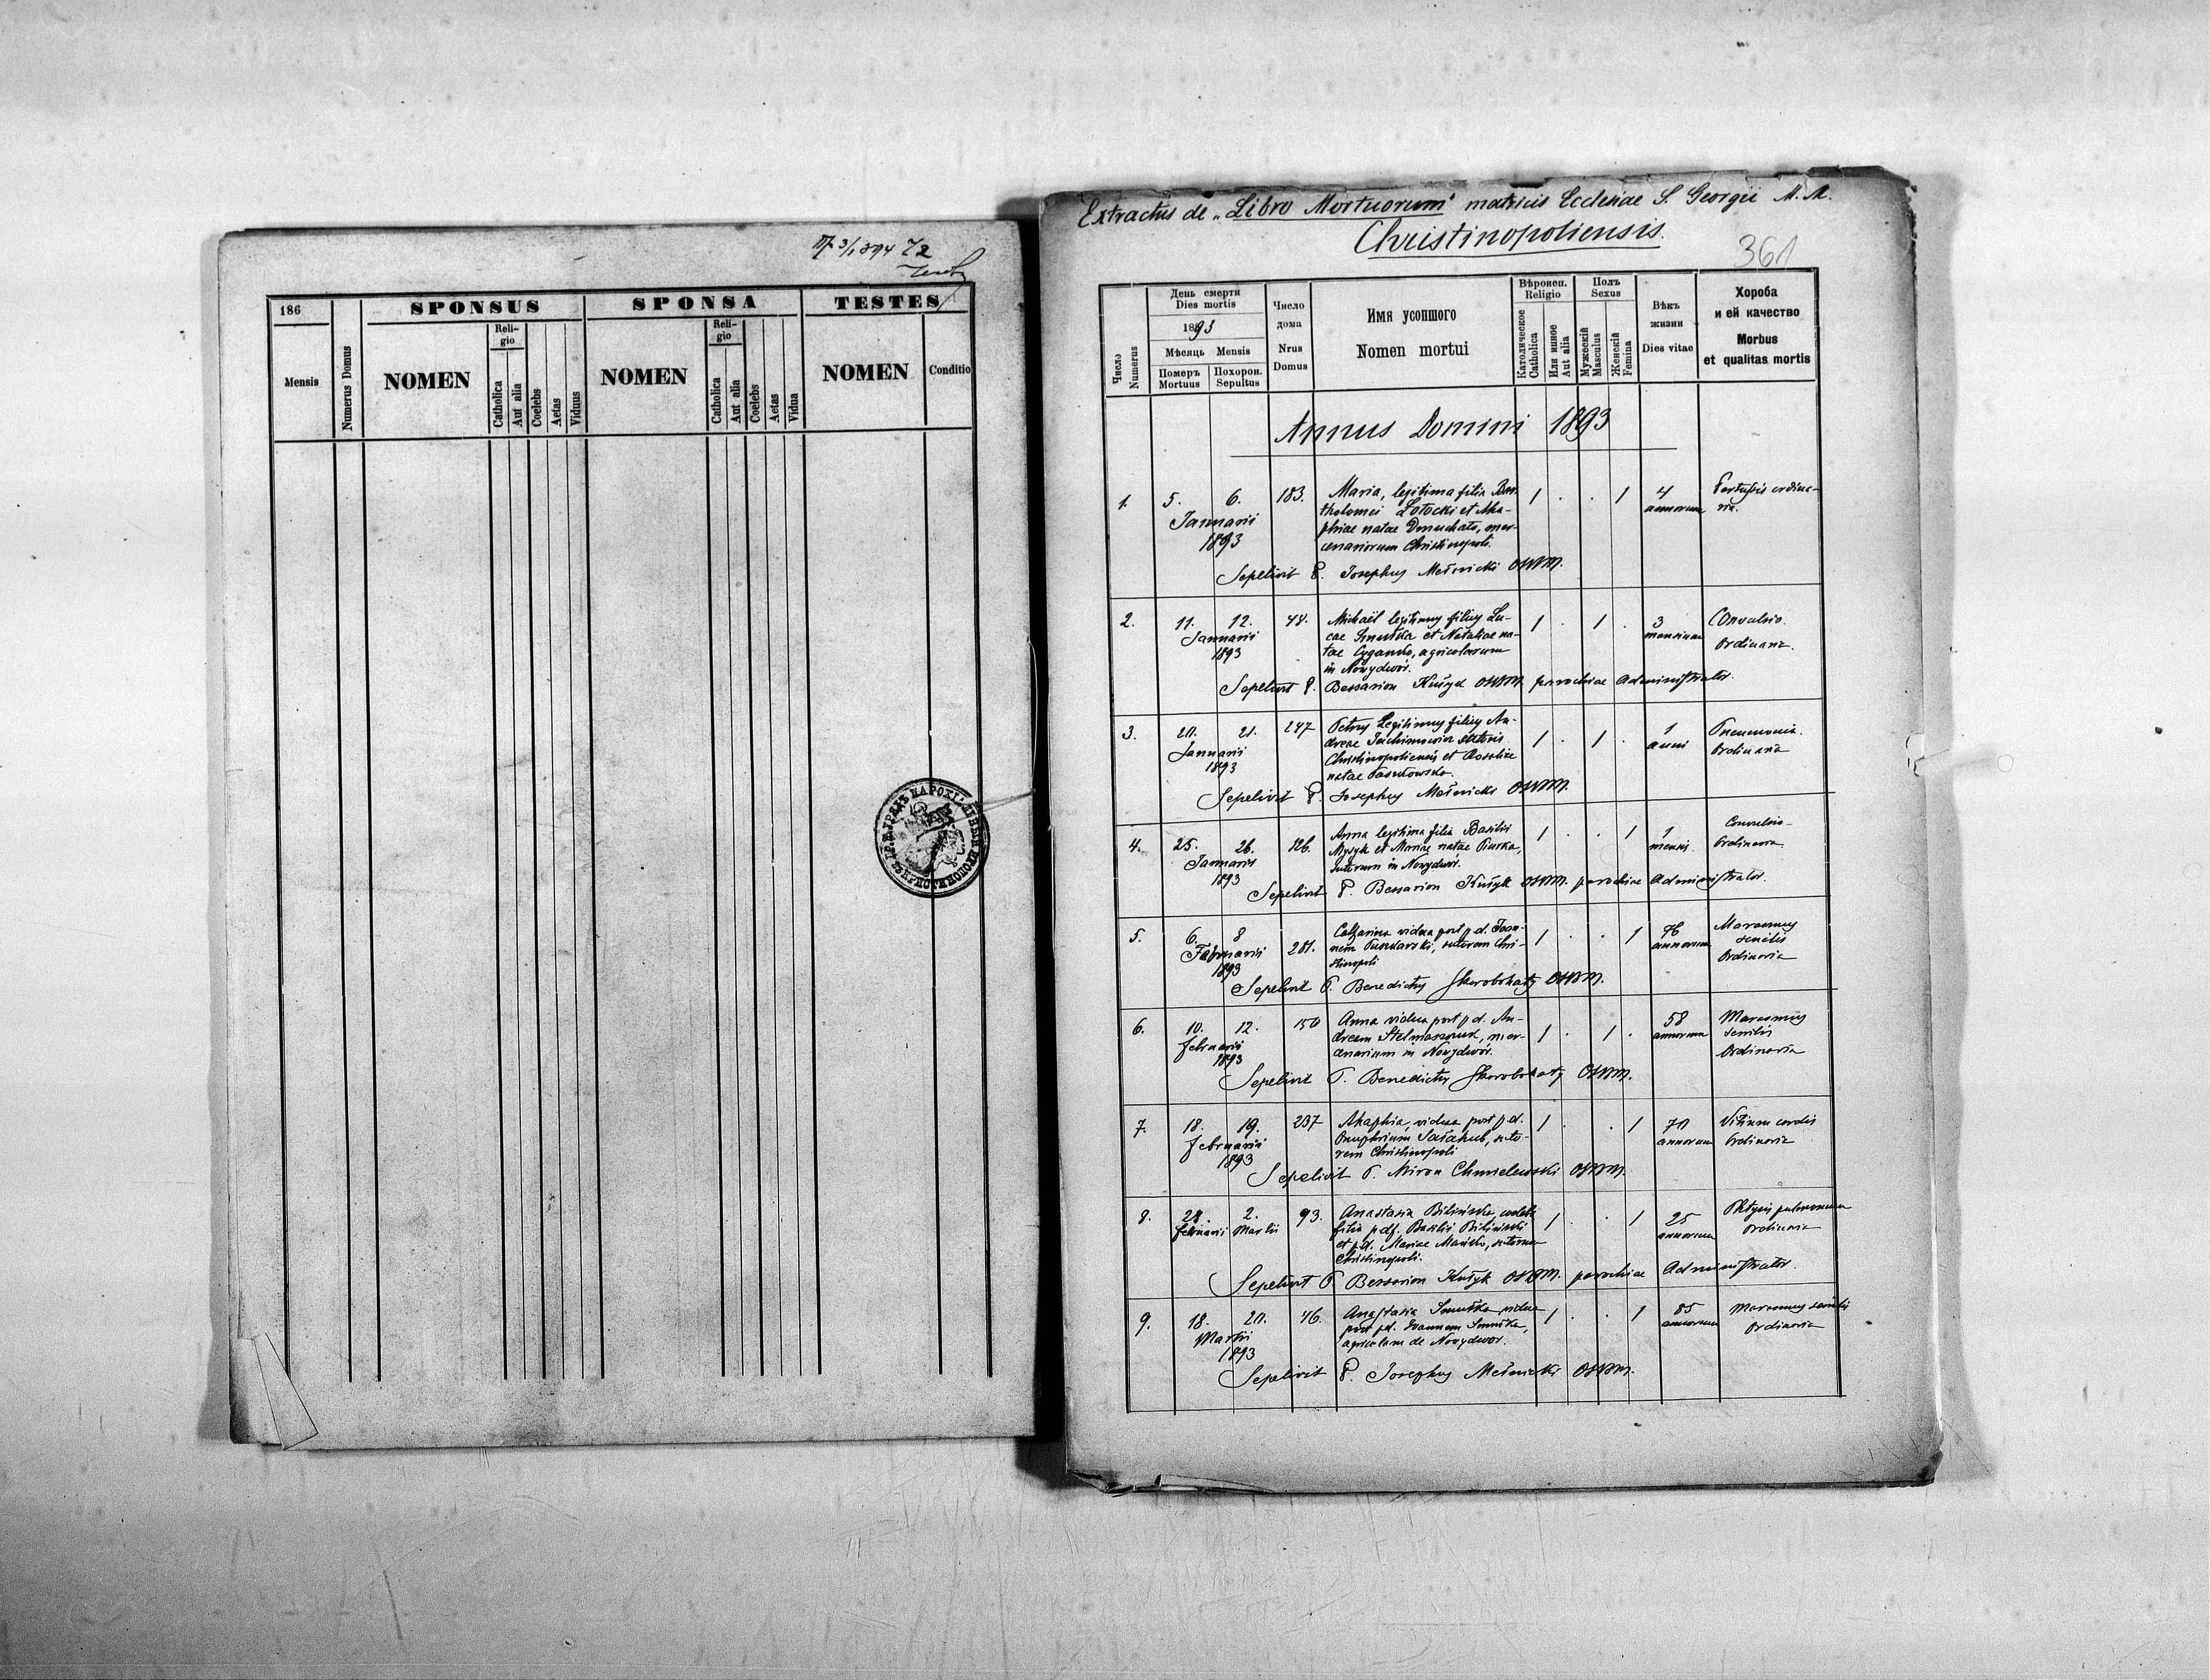 186
SPONSUS
SPONSA
TESTES
Mensis
Numerus Domus
NOMEN
Reli-
gio
Catholica
Aut alia
Coelebs
Aetas
Viduus
NOMEN
Reli-
gio
Catholica
Aut alia
Coelebs
Aetas
Vidua
NOMEN
Conditio
Extractus de „Libro Mortuorum" matricis Ecclesiae S. Georgii M. M.
Christinopoliensis.
361
Число
Numerus
День смерти
Dies mortis
1893
Мѣсяць Mensis
Померъ
Mortuus
Похорон.
Sepultus
Число
дома
Nrus
Domus
Имя усопшого
Nomen mortui
Вѣроисп.
Religio
Католическое
Catholica
Или инное
Aut alia
Полъ
Sexus
Мужескій
Masculus
Женскій
Femina
Вѣкъ
жизни
Dies vitae
Хороба
и ей качество
Morbus
et qualitas mortis
Annus Domini 1893
1. 5. 6. 183. Maria, legitima filia Bar- 1 . . 1 4
tholomei Łotocki et Aka- annorum
Januarii phiae natae Demuchato, mer-
1893 cenariorum Christinopoli.
Sepelivit P. Josephus Melnicki OSBM.
2. 11. 12. 48. Michaël legitimus filius Lu- 1 . 1 . 3 Convulsio
Januarii cae Smutka et Nataliae na- mensium Ordinaria.
1893 tae Cyganko, agricolarum
in Nowydwór.
Sepelivit P. Bessarion Kušyk OSBM. parochiae Administrator.
3. 20. 21. 247 Petrus Legitimus filius An- 1 . 1 . 1 Pneumonia.
Januarii dreae Jachimowicz sutoris anni Ordinaria
1893 Christinopoliensis et Rosaliae
natae
Sepelivit P. Josephus Melnicki OSBM.
4. 25. 26. 126. Anna legitima filia Basilii 1 . . 1 1 Convulsio
Januarii Mysyk et Mariae natae mensis. Ordinaria.
1893 sutorum in Nowydwór.
Sepelivit P. Bessarion Kušyk OSBM. parochiae Administrator.
5. 6. 8 281. Catharina vidua post p. d. Joan- 1 . . 1 76 Marasmus
Februarii nem sutorem Chri- annorum senilis
1893 stinopoli Ordinaria
Sepelivit P. Benedictus Skorobohaty OSBM.
6. 10. 12. 150 Anna vidua post p. d. An- 1 . 1 . 58 Marasmus
Februarii dream Stelmaszczuk, mer- annorum senilis
1893 cenarium in Nowydwór. Ordinaria
Sepelivit P. Benedictus Skorobohaty OSBM.
7. 18. 19. 237 Ahaphia, vidua post p. d. 1 . . 1 70 Vitium cordis
Februarii Onuphrium Sałahub, suto- annorum Ordinaria
1893 rem Christinopoli
Sepelivit P. Miron Chmielewski OSBM.
8. 28. 2. 93. Anastasia Bilińska, caelebs 1 . . 1 25 Phtysis pulmonum
Februarii Martii filia p. df. Basilii Biliński annorum Ordinaria
et p. d. Mariae sutorum
Christinopoli.
Sepelivit P. Bessarion Kušyk OSBM. parochiae Administrator.
9. 18. 20. 46. Anastasia Smutka vidua 1 . . 1 85 Marasmus senilis
Martii post p. d. Ioannem Smutka, annorum Ordinaria
1893 agricolam de Nowydwór.
Sepelivit P. Josephus Melnicki OSBM.